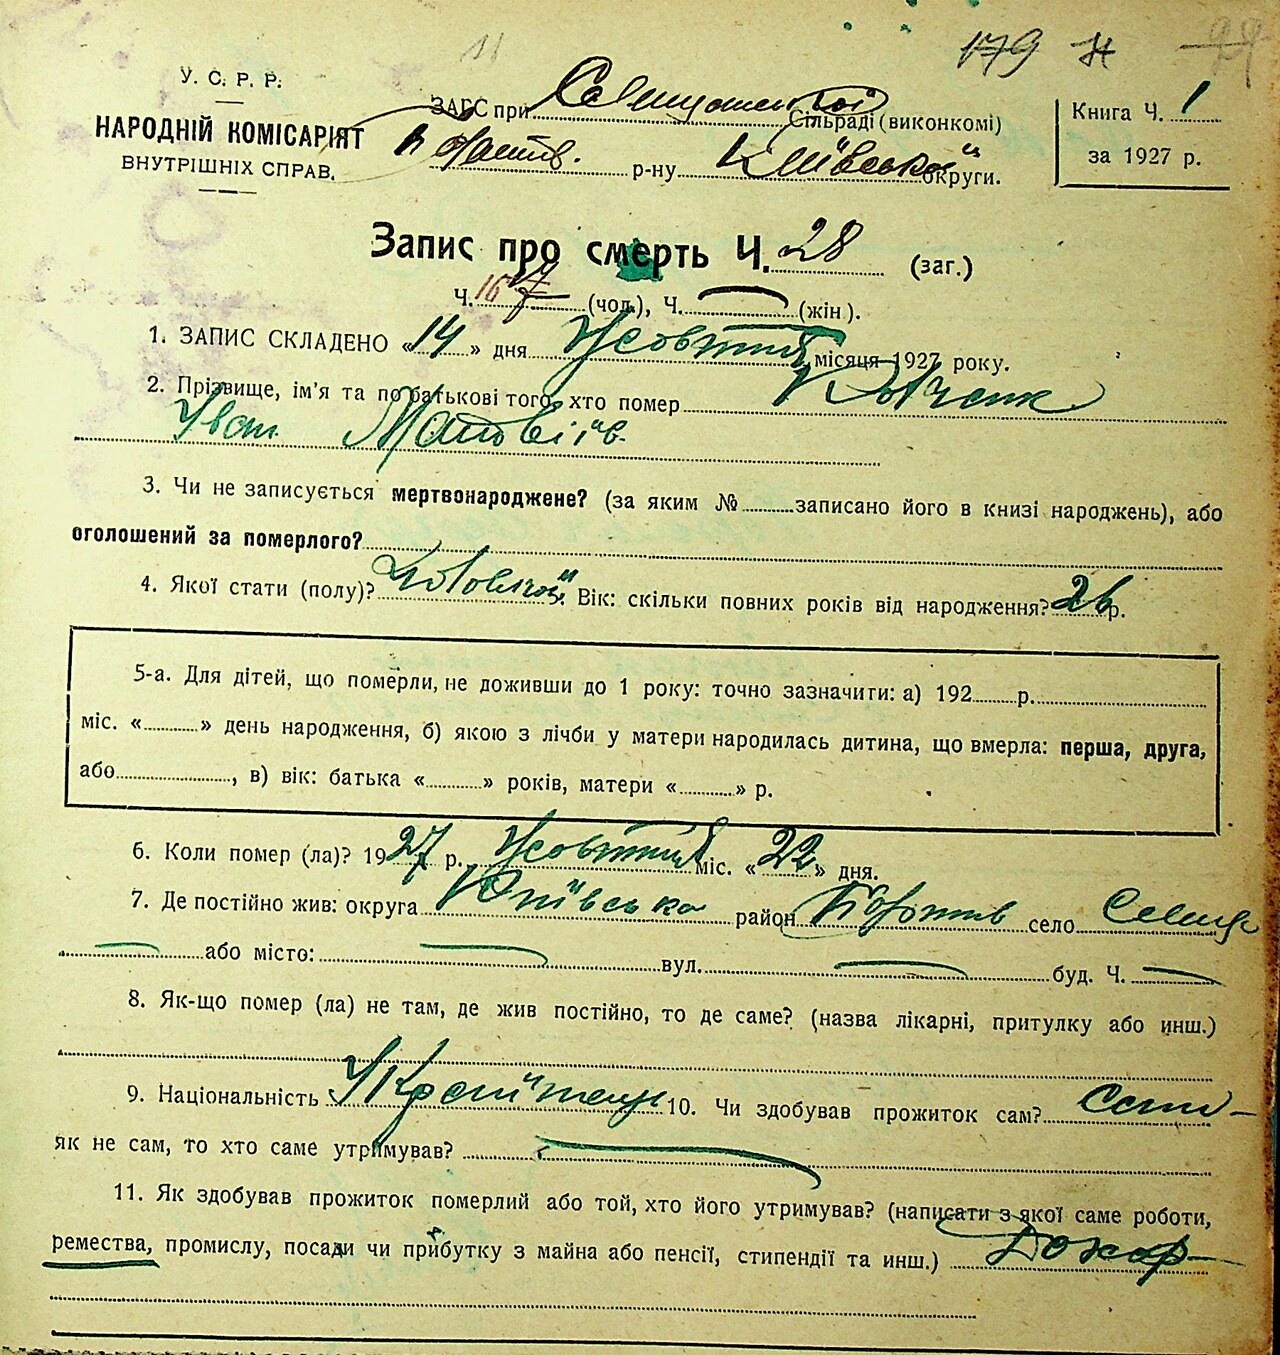 11 179 н
У. С. Р. Р.
НАРОДНІЙ КОМІСАРІЯТ
ВНУТРІШНІХ СПРАВ.
ЗАГС при Сільраді (виконкомі)
р-ну Київської округи.
Книга Ч. 1
за 1927 р.
Запис про смерть Ч. 28 (заг.)
Ч. 16 (чол.), Ч. (жін).
1. ЗАПИС СКЛАДЕНО «14» дня Жовтня місяця 1927 року.
2. Прізвище, ім'я та по батькові того, хто помер
Іван Матвіїв.
3. Чи не записується мертвонароджене? (за яким № записано його в книзі народжень), або
оголошений за померлого?
4. Якої стати (полу)? Чоловічої. Вік: скільки повних років від народження? 26 р.
5-а. Для дітей, що померли, не доживши до 1 року: точно зазначити: а) 192 р.
міс. « » день народження, б) якою з лічби у матери народилась дитина, що вмерла: перша, друга,
або , в) вік: батька « » років, матери « » р.
6. Коли помер (ла)? 1927 р. Жовтня міс. «22» дня.
7. Де постійно жив: округа Київська район село
або місто: вул. буд. Ч.
8. Як-що помер (ла) не там, де жив постійно, то де саме? (назва лікарні, притулку або инш.)
9. Національність Українець 10. Чи здобував прожиток сам? Сам
як не сам, то хто саме утримував?
11. Як здобував прожиток померлий або той, хто його утримував? (написати з якої саме роботи,
ремества, промислу, посади чи прибутку з майна або пенсії, стипендії та инш.)